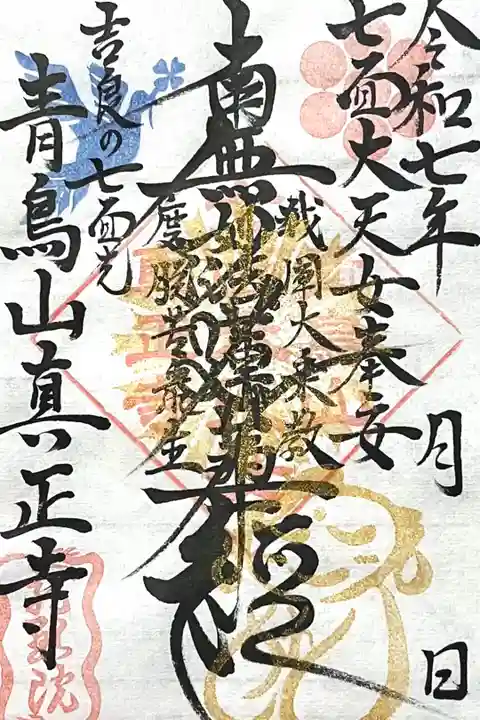 令和七年 月 日
七面大天女奉安
我闡大乗教
南無妙法蓮華経
度脱苦衆生
吉良の七面
青鳥山真正寺